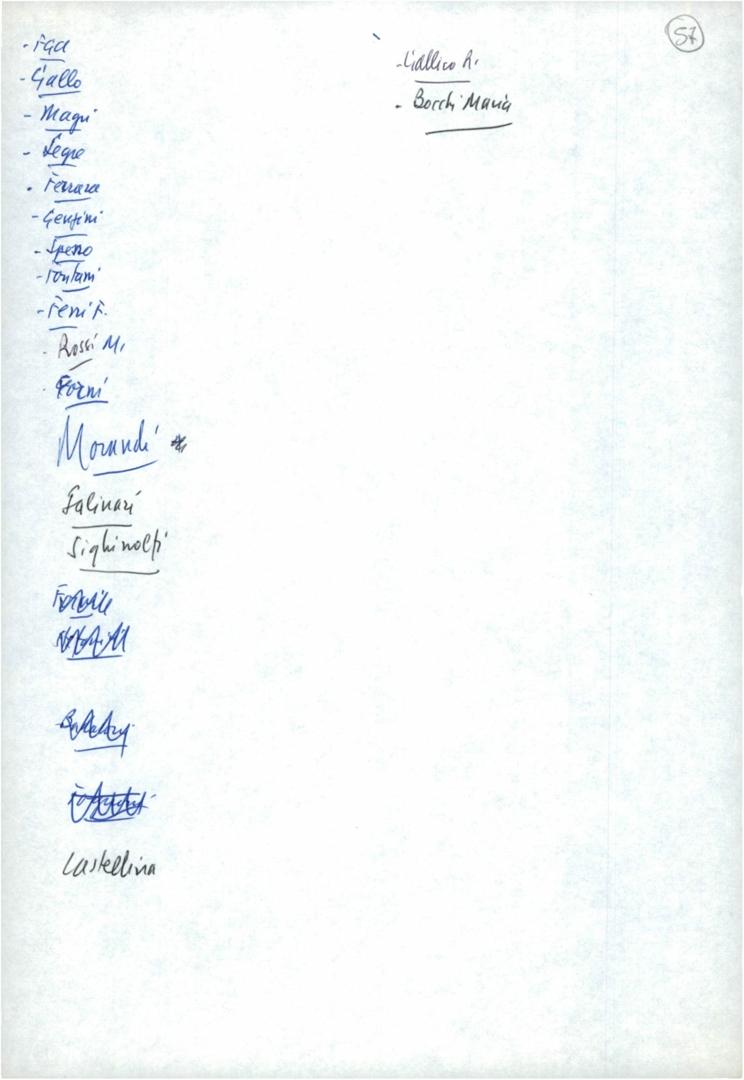 57
- FGCI
- Gallo
- Magri
- Segre
- Ferrara
- Gensini
- Speno
- Fontani
- Ferri F.
- Rossi M.
- Forni
Morandi
Salinari
Sighinolfi
Castellina
- Gallico A.
- Bocchi Maria